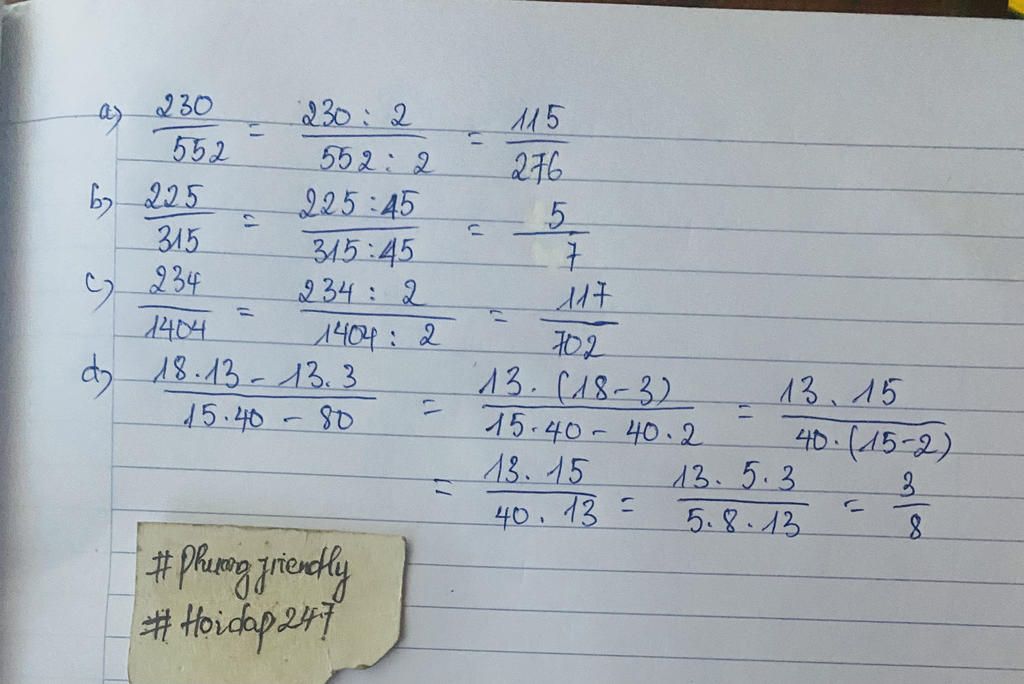 a) 230/552 = 230 : 2/552 : 2 = 115/276
b) 225/315 = 225 : 45/315 : 45 = 5/7
c) 234/1404 = 234 : 2/1404 : 2 = 117/702
d) 18.13 - 13.3/15.40 - 80 = 13. (18-3)/15.40 - 40.2 = 13. 15/40. (15-2)
= 13. 15/40. 13 = 13. 5. 3/5. 8. 13 = 3/8
# Phuong friendly
# Hoidap 247